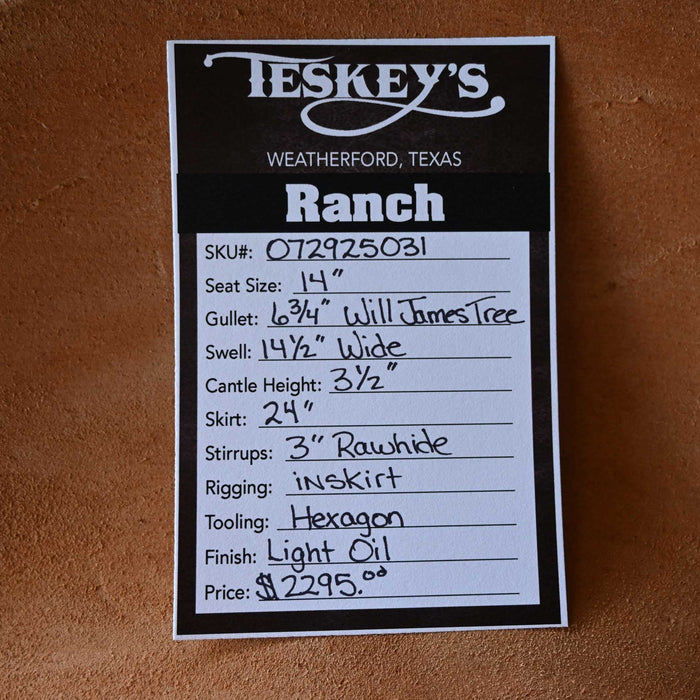 TESKEY'S
WEATHERFORD, TEXAS
Ranch
SKU#: 072925031
Seat Size: 14"
Gullet: 6 3/4" Will James Tree
Swell: 14 1/2" Wide
Cantle Height: 3 1/2"
Skirt: 24"
Stirrups: 3" Rawhide
Rigging: inskirt
Tooling: Hexagon
Finish: Light Oil
Price: $2295.00